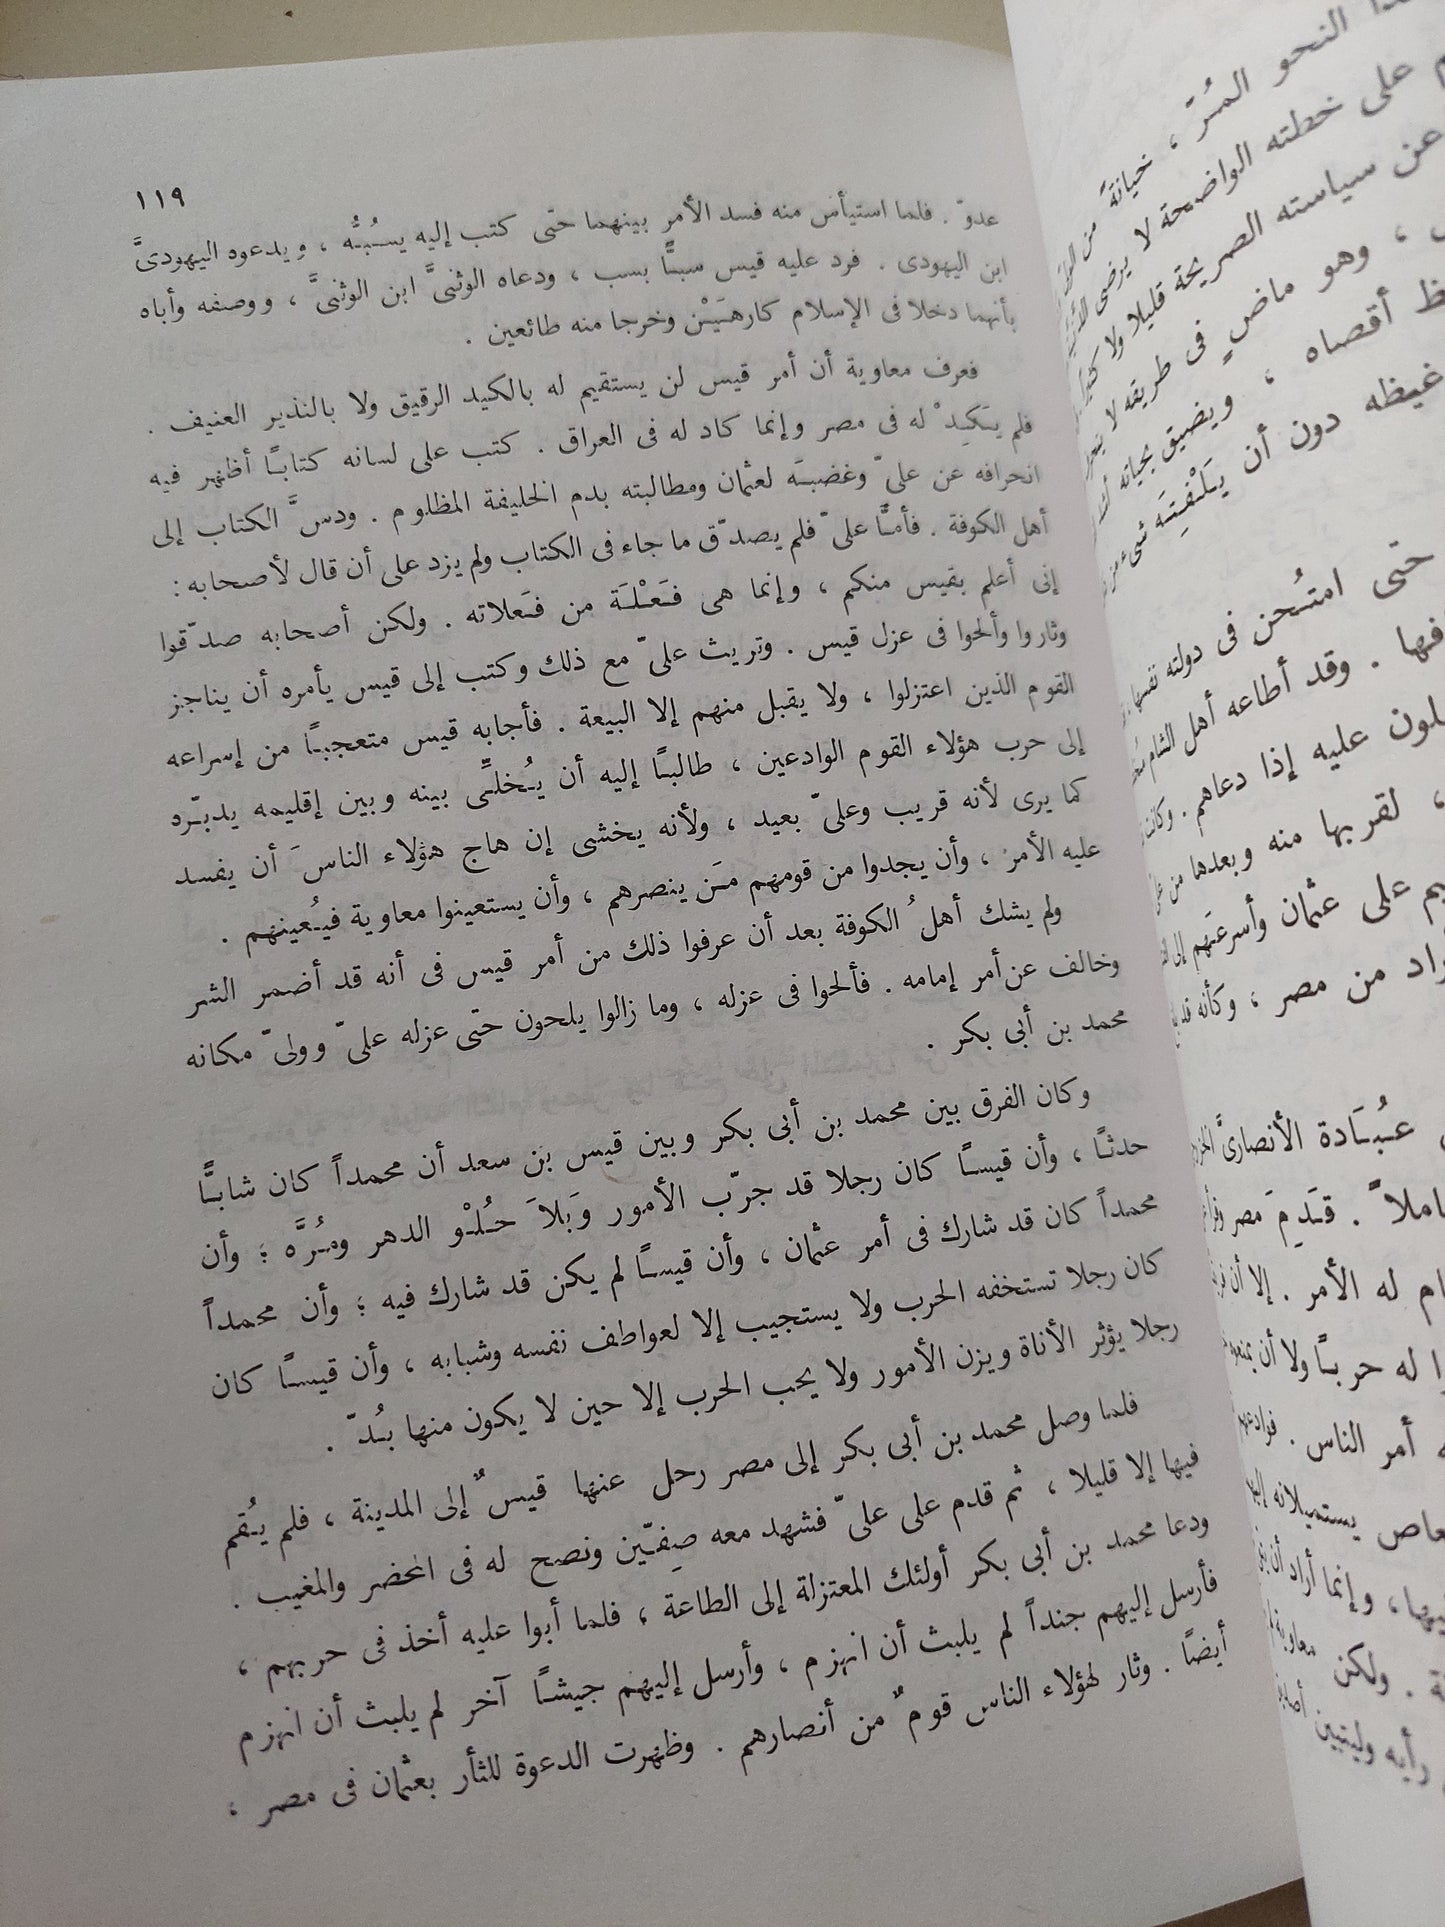 ١١٩
عدوّ . فلما استيأس منه فسد الأمر بينهما حتى كتب إليه يسُبُّه ، ويدعوه اليهودىَّ
ابن اليهودى . فرد عليه قيس سبًّا بسب ، ودعاه الوثنىَّ ابن الوثنىَّ ، ووصفه وأباه
بأنهما دخلا فى الإسلام كارهَيْن وخرجا منه طائعين .
فعرف معاوية أن أمر قيس لن يستقيم له بالكيد الرقيق ولا بالنذير العنيف .
فلم يَكِدْ له فى مصر وإنما كاد له فى العراق . كتب على لسانه كتابًا أظهر فيه
انحرافه عن علىّ وغضبَه لعثمان ومطالبته بدم الخليفة المظلوم . ودسَّ الكتاب إلى
أهل الكوفة . فأمَّا علىّ فلم يصدّق ما جاء فى الكتاب ولم يزد على أن قال لأصحابه :
إنى أعلم بقيس منكم ، وإنما هى فَعْلَة من فَعلاته . ولكن أصحابه صدّقوا
وثاروا وألحوا فى عزل قيس . وتريث علىّ مع ذلك وكتب إلى قيس يأمره أن يناجز
القوم الذين اعتزلوا ، ولا يقبل منهم إلا البيعة . فأجابه قيس متعجبًا من إسراعه
إلى حرب هؤلاء القوم الوادعين ، طالبًا إليه أن يُخلِّى بينه وبين إقليمه يدبّره
كما يرى لأنه قريب وعلىّ بعيد ، ولأنه يخشى إن هاج هؤلاء الناسَ أن يفسد
عليه الأمر ، وأن يجدوا من قومهم مَن ينصرهم ، وأن يستعينوا معاوية فيُعينهم .
ولم يشك أهلُ الكوفة بعد أن عرفوا ذلك من أمر قيس فى أنه قد أضمر الشر
وخالف عن أمر إمامه . فألحوا فى عزله ، وما زالوا يلحون حتى عزله علىّ وولىّ مكانه
محمد بن أبى بكر .
وكان الفرق بين محمد بن أبى بكر وبين قيس بن سعد أن محمداً كان شابًّا
حدثًا ، وأن قيسًا كان رجلا قد جرّب الأمور وَبَلاَ حُلْو الدهر ومُرَّه ؛ وأن
محمداً كان قد شارك فى أمر عثمان ، وأن قيسًا لم يكن قد شارك فيه ؛ وأن محمداً
كان رجلا تستخفه الحرب ولا يستجيب إلا لعواطف نفسه وشبابه ، وأن قيسًا كان
رجلا يؤثر الأناة ويزن الأمور ولا يحب الحرب إلا حين لا يكون منها بُدّ .
فلما وصل محمد بن أبى بكر إلى مصر رحل عنها قيسٌ إلى المدينة ، فلم يُقم
فيها إلا قليلا ، ثم قدم على علىّ فشهد معه صِفِّين ونصح له فى المحضر والمغيب .
ودعا محمد بن أبى بكر أولئك المعتزلة إلى الطاعة ، فلما أبوا عليه أخذ فى حربهم ،
فأرسل إليهم جنداً لم يلبث أن انهزم ، وأرسل إليهم جيشًا آخر لم يلبث أن انهزم
أيضًا . وثار لهؤلاء الناس قومٌ من أنصارهم . وظهرت الدعوة للثأر بعثمان فى مصر ،
النحو المُرّ ، خيانةً من
على خطته الواضحة لا يرضى
عن سياسته الصريحة قليلا ولا
، وهو ماضٍ فى طريقه لا
أقصاه ، ويضيق بحياته
غيظه دون أن يَلْفِتَه شىء
حتى امتُحن فى دولته نفسها
. وقد أطاعه أهل الشام
عليه إذا دعاهم . وكانت
، لقربها منه وبعدها من
على عثمان وأسرعَهم إلى
من مصر ، وكأنه قد
عُبَادة الأنصارىّ
. قَدِمَ مصر
له الأمر . إلا أن
له حربًا ولا أن
أمر الناس . فوادعهم
يستميلانه
، وإنما أراد أن
. ولكن معاوية
رأيه وليتبين